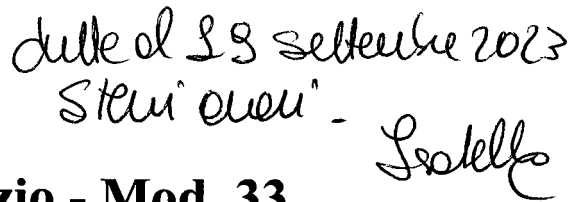 al 19 settembre 2023
Stessi orari -
Isabella
zio - Mod. 33